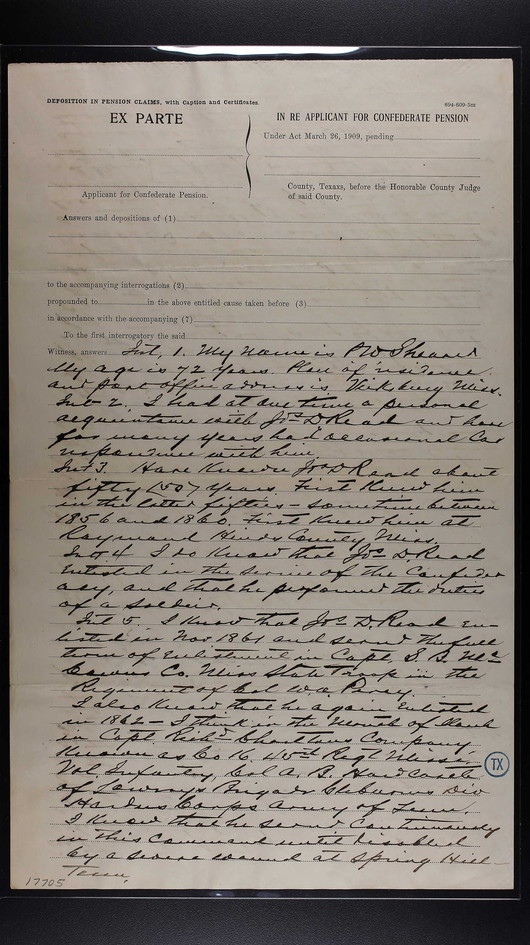 DEPOSITION IN PENSION CLAIMS, with Caption and Certificates.
694-609-3m
EX PARTE
IN RE APPLICANT FOR CONFEDERATE PENSION
Under Act March 26, 1909, pending
County, Texaxs, before the Honorable County Judge
of said County.
Applicant for Confederate Pension.
Answers and depositions of (1)
to the accompanying interrogations (2)
propounded to in the above entitled cause taken before (3)
in accordance with the accompanying (7)
To the first interrogatory the said
Witness, answers Int, 1. My name is P W Shearer
My age is 72 years. Place of residence
and post office address is Vicksburg Miss.
Int 2. I had at one time a personal
acquaintance with Jos D Read and have
for many years had occasional Cor
respondence with him.
Int 3. Have known Jos D Read about
fifty (50) years. First knew him
in the latter fifties - sometime between
1856 and 1860. First knew him at
Raymond Hinds County, Miss.
Int 4 I do know that Jos D Read
enlisted in the service of the Confeder
acy, and that he performed the duties
of a soldier.
Int 5. I know that Jos D. Read en-
listed in Nov 1861 and served the full
term of enlistment in Capt. S. B. Mc
Co. Miss State Troops in the
Regiment of Col
I also know that he again enlisted
in 1862 - I think in the month of March
in Capt. Richd Company
known as Co K. 45th Regt Miss.
Vol. Infantry, Col A. B. Hardcastle
of Lowrey's Brigade Cleburne's Div
Hardees Corps Army of Tenn.
I know that he served continuously
in this command until disabled
by a severe wound at Spring Hill
Tenn.
TX
17705